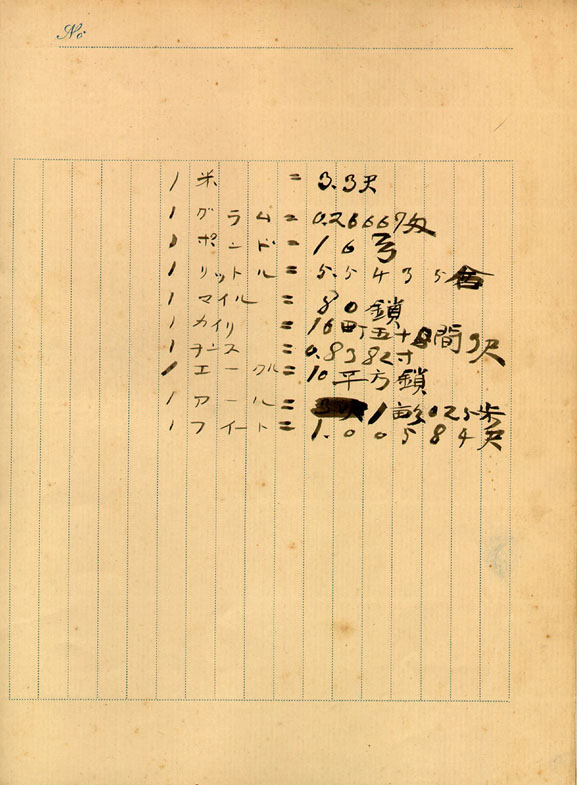 No
1 米 = 3.3尺
1 グラム = 0.26667匁
1 ポンド = 16
1 リットル = 5.5435合
1 マイル = 80鎖
1 カイリ = 16町五十間3尺
1 = 0.8382寸
1 エークル = 10平方鎖
1 アール = 1畝025歩
1 フイート = 1.00584尺